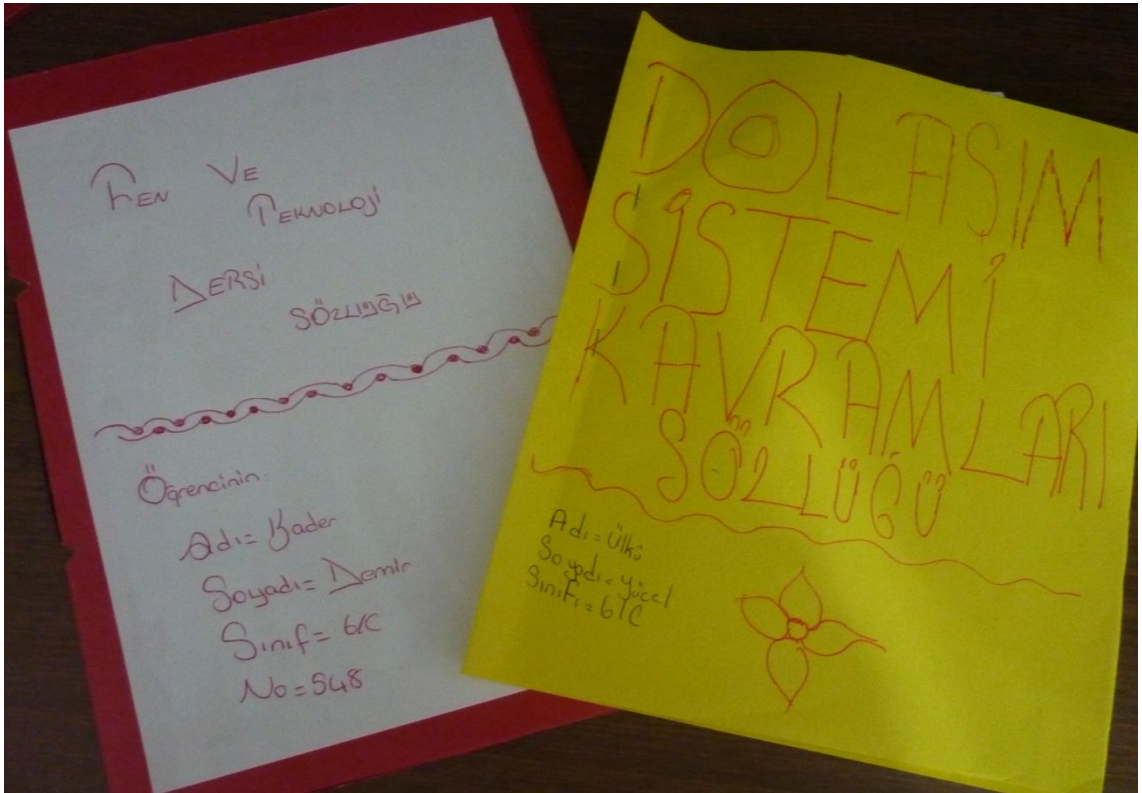 FEN VE
TEKNOLOJİ
DERSİ
SÖZLÜĞÜ
Öğrencinin:
Adı = Kader
Soyadı = Demir
Sınıf = 6/C
No = 548
DOLAŞIM
SİSTEMİ
KAVRAMLARI
SÖZLÜĞÜ
Adı = Ülkü
Soyadı = Yücel
Sınıfı = 6/C